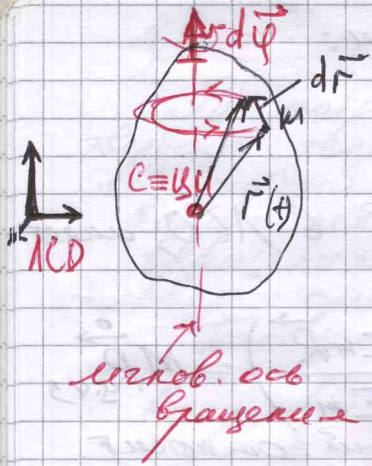 dφ⃗
dr⃗
M
C≡ЦИ
r⃗(t)
ЛСО
мгнов. ось
вращения